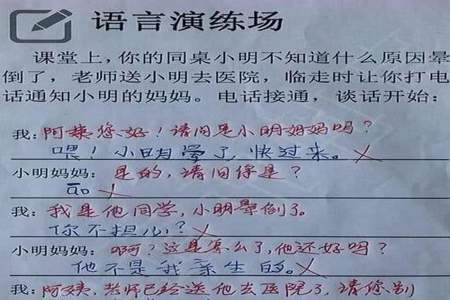 语言演练场
课堂上，你的同桌小明不知道什么原因晕
倒了，老师送小明去医院，临走时让你打电
话通知小明的妈妈。电话接通，谈话开始：
我：阿姨您好！请问是小明妈妈吗？
喂！小明晕了，快过来。
小明妈妈：是的，请问你是？
而
我：我是他同学，小明晕倒了。
你不担心？
小明妈妈：啊？这是怎么了，他还好吗？
他不是我亲生的。
我：阿姨，老师已经送他去医院了，请您别